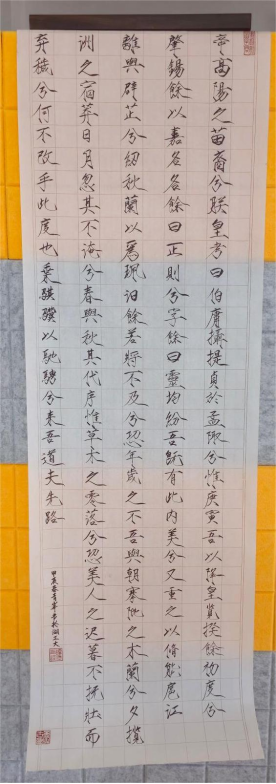 帝高陽之苗裔兮朕皇考曰伯庸攝提貞於孟陬兮惟庚寅吾以降皇覽揆餘初度兮
肇錫餘以嘉名名餘曰正則兮字餘曰靈均紛吾既有此內美兮又重之以脩能扈江
離與辟芷兮紉秋蘭以為佩汩餘若將不及兮恐年歲之不吾與朝搴阰之木蘭兮夕攬
洲之宿莽日月忽其不淹兮春與秋其代序惟草木之零落兮恐美人之遲暮不撫壯而
棄穢兮何不改乎此度也乘騏驥以馳騁兮來吾道夫先路
甲辰春書於湖工大